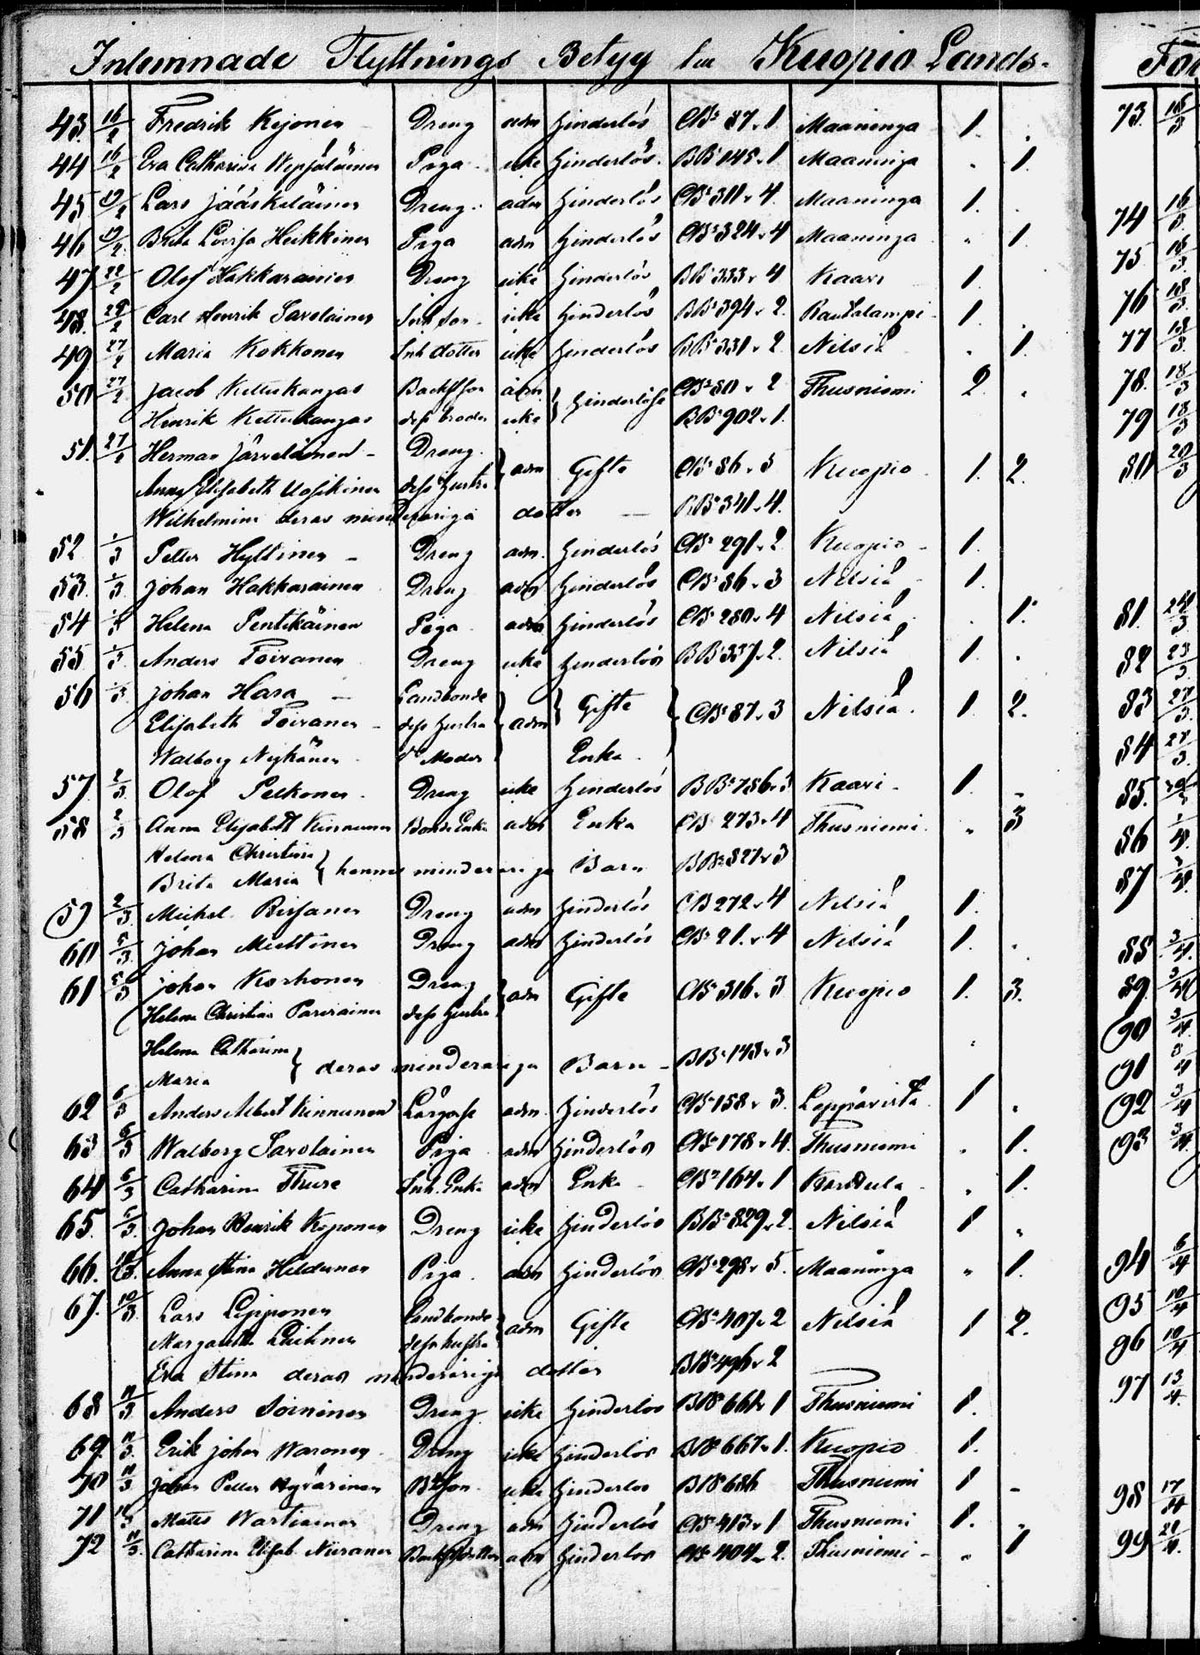 Inlemnade Flyttnings Betyg från Kuopio Lands-
43. 16/2 Fredrik Kejonen Dreng adm hinderlös CB: 87. 1 Maaninga 1.
44 16/2 Eva Catharina Piga icke hinderlös BB: 145. 1 Maaninga 1.
45 19/2 Lars Jääskeläinen Dreng adm hinderlös CB: 311. 4. Maaninga 1.
46 19/2 Brita Lovisa Heikkinen Piga adm hinderlös CB: 324. 4 Maaninga 1
47 22/2 Olof Hakkarainen Dreng icke hinderlös BB: 333. 4 Kaavi 1
48. Carl Henrik Savolainen Inh son icke hinderlös BB: 394. 2. Rautalampi 1.
49 27/2 Maria Kokkonen Inh dotter icke hinderlös BB: 331. 2 Nilsiä 1.
50 27/2 Jacob Ketturkangas adm hinderlöse CB: 80. 2 Thusniemi 2.
Henrik Ketturkangas dess broder icke BB: 902. 1.
51. 27/2 Herman Järveläinen Dreng adm Gifte CB: 86. 3 Kuopio 1. 2.
Anna Elisabeth dess hustru
Wilhelmina deras minderåriga dotter BB: 341. 4.
52 1/3 Petter Hyttinen Dreng adm. hinderlös CB: 291. 2. Kuopio 1.
53. 1/3 Johan Hakkarainen Dreng adm hinderlös CB: 86. 3 Nilsiä 1.
54 1/3 Helena Pentikäinen Piga adm hinderlös CB: 280. 4 Nilsiä 1.
55 1/3 Anders Toivanen Dreng icke hinderlös BB: 337. 2. Nilsiä 1.
56 1/3 Johan Hara Landbonde adm Gifte CB: 87. 3 Nilsiä 1 2.
Elisabeth Toivanen dess hustru
Walborg Nykänen Moder Enka
57 2/3 Olof Pelkonen Dreng icke hinderlös BB: 756. 3 Kaavi 1
58 2/3 Anna Elisabeth Kinnunen Enka adm Enka CB: 273. 4 Thusniemi 3
Helena Christina
Brita Maria hennes minderåriga Barn BB: 827. 3
59 2/3 Michel Dreng adm hinderlös CB 272. 4 Nilsiä 1.
60 5/3 Johan Miettinen Dreng adm hinderlös CB: 21. 4 Nilsiä 1.
61 5/3 Johan Korhonen Dreng adm Gifte CB: 316. 3 Kuopio 1. 3.
Helena Christina dess hustru
Helena Catharina
Maria deras minderåriga Barn BB: 143. 3
62 6/3 Anders Albert Kinnunen adm. hinderlös CB: 158. 3. Leppävirta 1
63 6/3 Walborg Savolainen Piga adm hinderlös CB: 178. 4. Thusniemi 1.
64 6/3 Catharina Thure Inh. Enka adm Enka CB: 164. 1 Karttula 1.
65. Johan Henrik Keponen Dreng icke hinderlös BB: 829. 2. Nilsiä 1
66. Anna Stina Piga adm hinderlös CB: 298. 5. Maaninga 1.
67. 10/3 Lars Lipponen Landbonde adm Gifte CB: 407. 2 Nilsiä 1 2.
Margareta dess hustru
Eva Stina deras minderåriga dotter BB: 496. 2
68 11/3 Anders Soininen Dreng icke hinderlös BB: 661. 1 Thusniemi 1.
69. 11/3 Erik Johan Waronen Dreng icke hinderlös BB: 667. 1. Kuopio 1.
70 11/3 Johan Petter icke hinderlös BB: 686 Thusniemi 1
71 Matts Wartiainen Dreng adm hinderlös CB: 413. 1 Thusniemi 1.
72 11/3 Catharina Elisab. Niiranen adm hinderlös CB: 404. 2. Thusniemi 1
73. 16/3
74 16/3
75 18/3
76 18/3
77 18/3
78. 18/3
79 18/3
80 20/3
81. 20/3
82 23/3
83 27/3
84 27/3
85.
86 1/4
87
88 3/4
89. 3/4
90 3/4
91 3/4
92 3/4
93 3/4
94 6/4
95 10/4
96 10/4
97 13/4
98 17/4
99 20/4